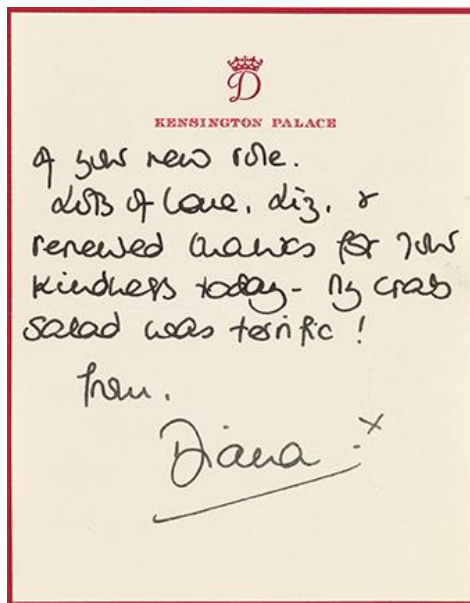 D
KENSINGTON PALACE
of your new role.
Lots of love, Liz, &
renewed thanks for your
kindness today - My crab
salad was terrific !
from,
Diana x